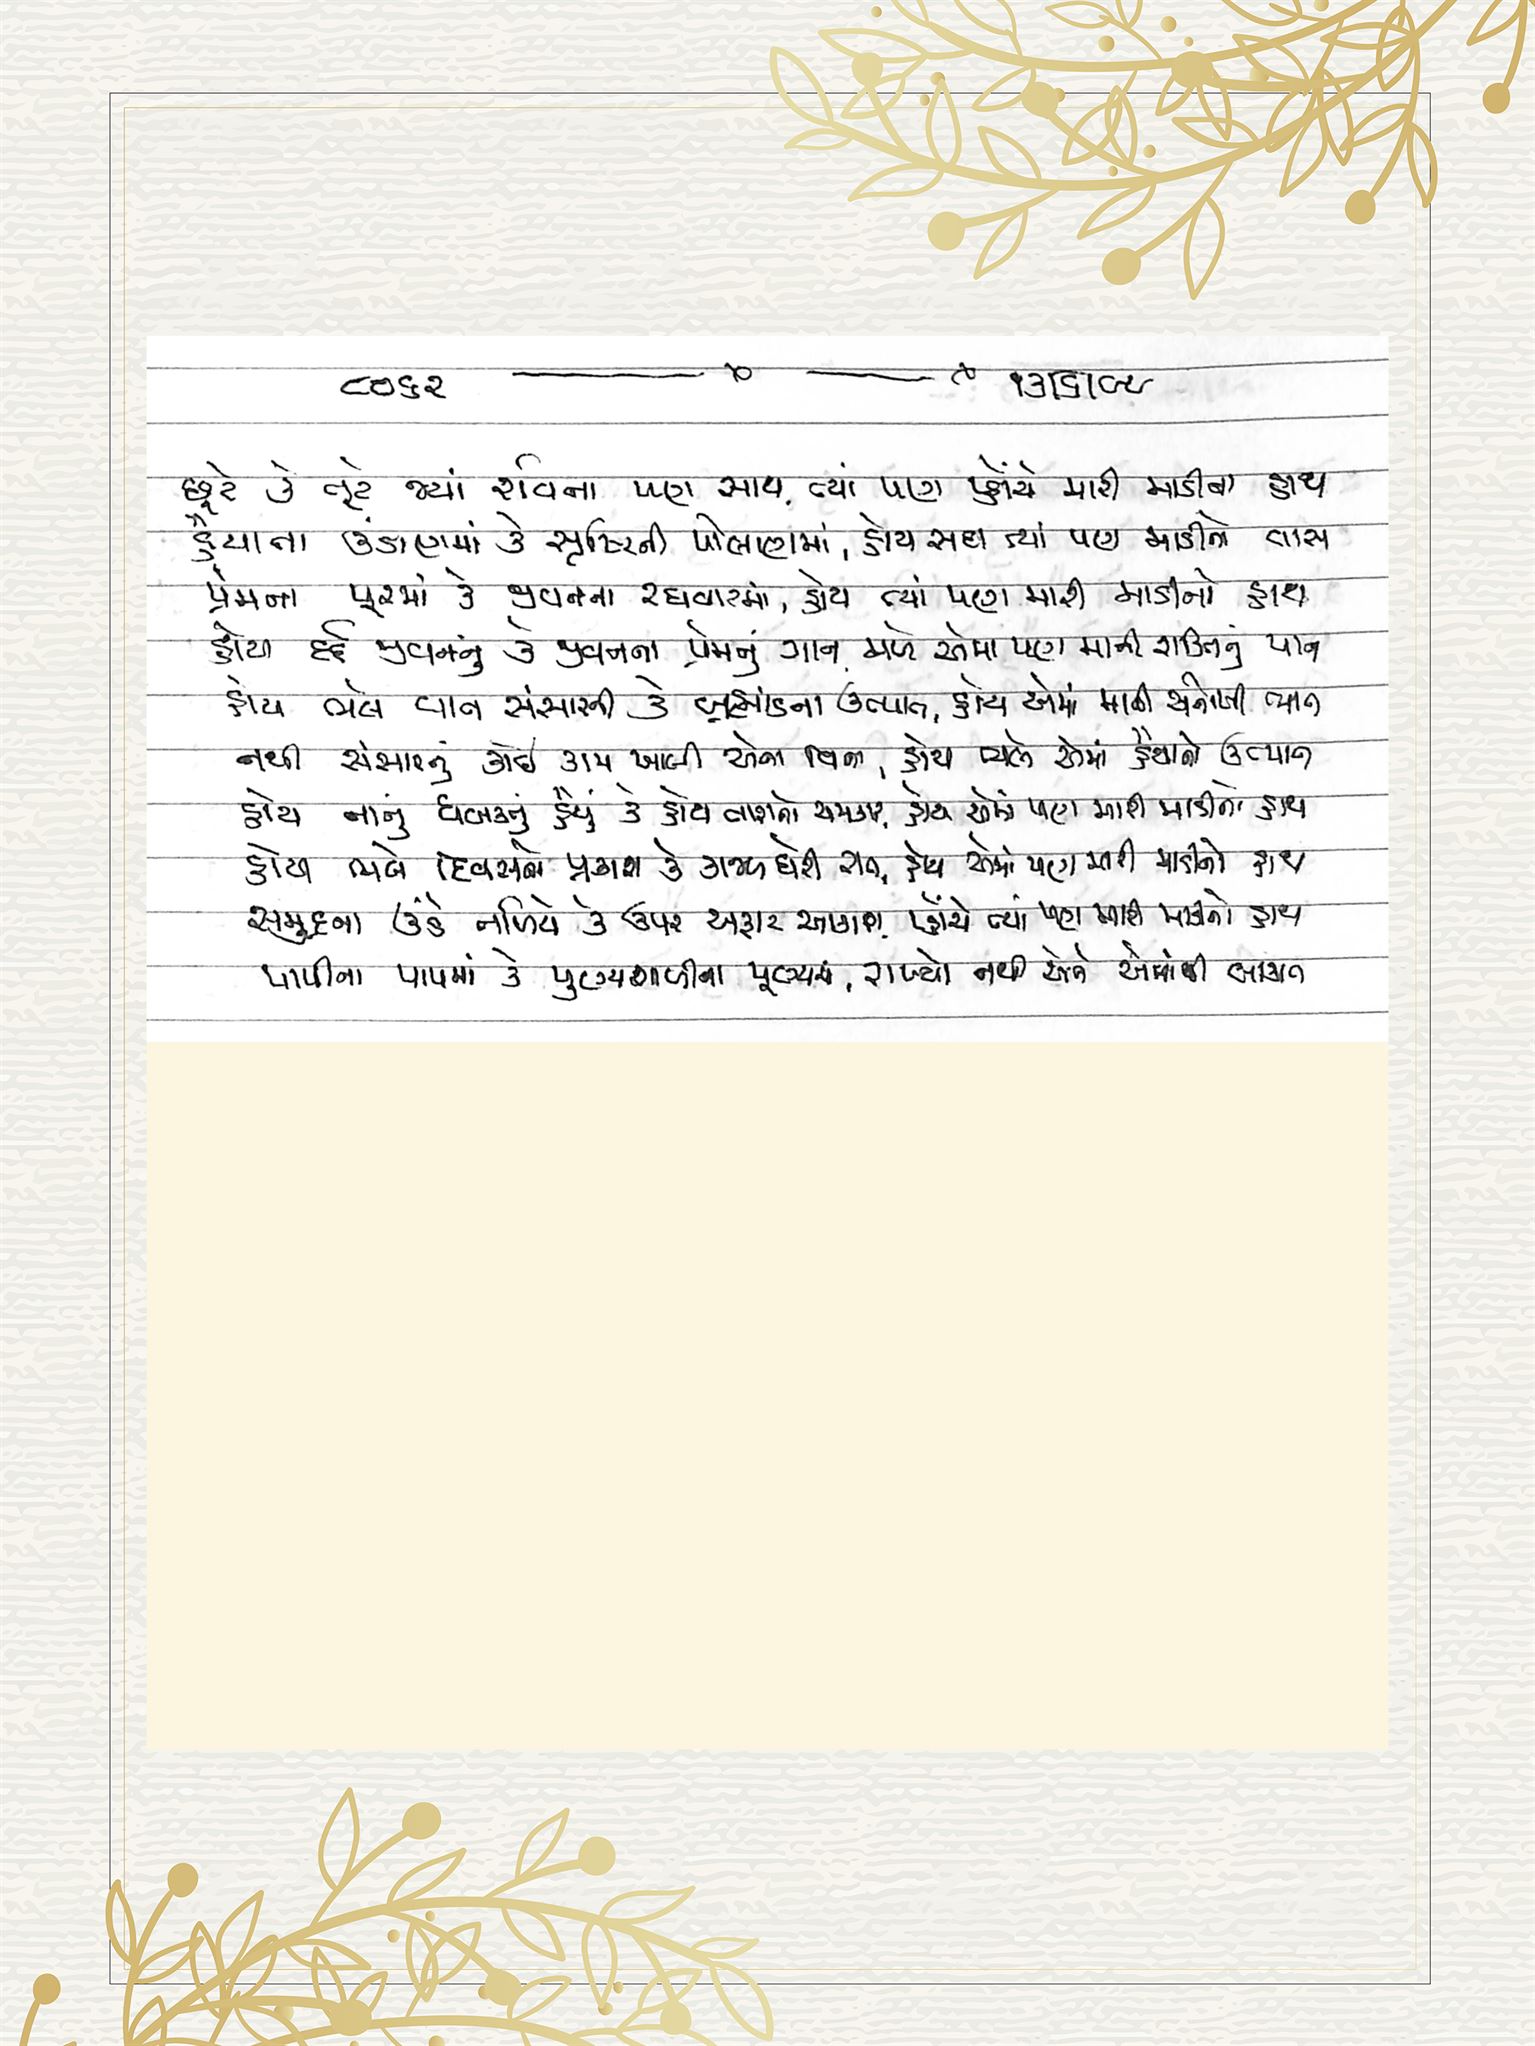 ૮૦૬૨ ૧૩/૬/૯૯
છૂટે કે તૂટે જ્યાં સર્વેના પણ સાથ, ત્યાં પણ પહોંચે મારી માડીના હાથ
હૈયાના ઉંડાણમાં કે સૃષ્ટિની પોલાણમાં, હોય સદા ત્યાં પણ માડીનો વાસ
પ્રેમના પૂરમાં કે જીવનના રઘવાટમાં, હોય ત્યાં પણ મારી માડીનો હાથ
હોય દર્દ જીવનનું કે જીવનના પ્રેમનું ગાન, મળે એમાં પણ માની શક્તિનું પાન
હોય ભલે વાત સંસારની કે બ્રહ્માંડના ઉત્પાત, હોય એમાં માની અનોખી ભાત
નથી સંસારનું કોઈ કામ ખાલી એના વિના, હોય ભલે એમાં હૈયાનો ઉત્પાત
હોય નાનું ધબકતું હૈયું કે હોય તારાનો ચમકાર, હોય એમાં પણ મારી માડીનો હાથ
હોય ભલે દિવસનો પ્રકાશ કે કાજળ ઘેરી રાત, હોય એમાં પણ મારી માડીનો હાથ
સમુદ્રના ઉંડે તળિયે કે ઉપર અફાટ આકાશ, પહોંચે ત્યાં પણ મારી માડીનો હાથ
પાપીના પાપમાં કે પુણ્યશાળીના પૂણ્યમાં, રાખ્યો નથી એને એમાંથી બાકાત